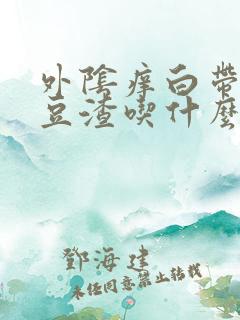 外陰痒白帶
豆渣喫什麽
鄧海建
未经同意禁止转载